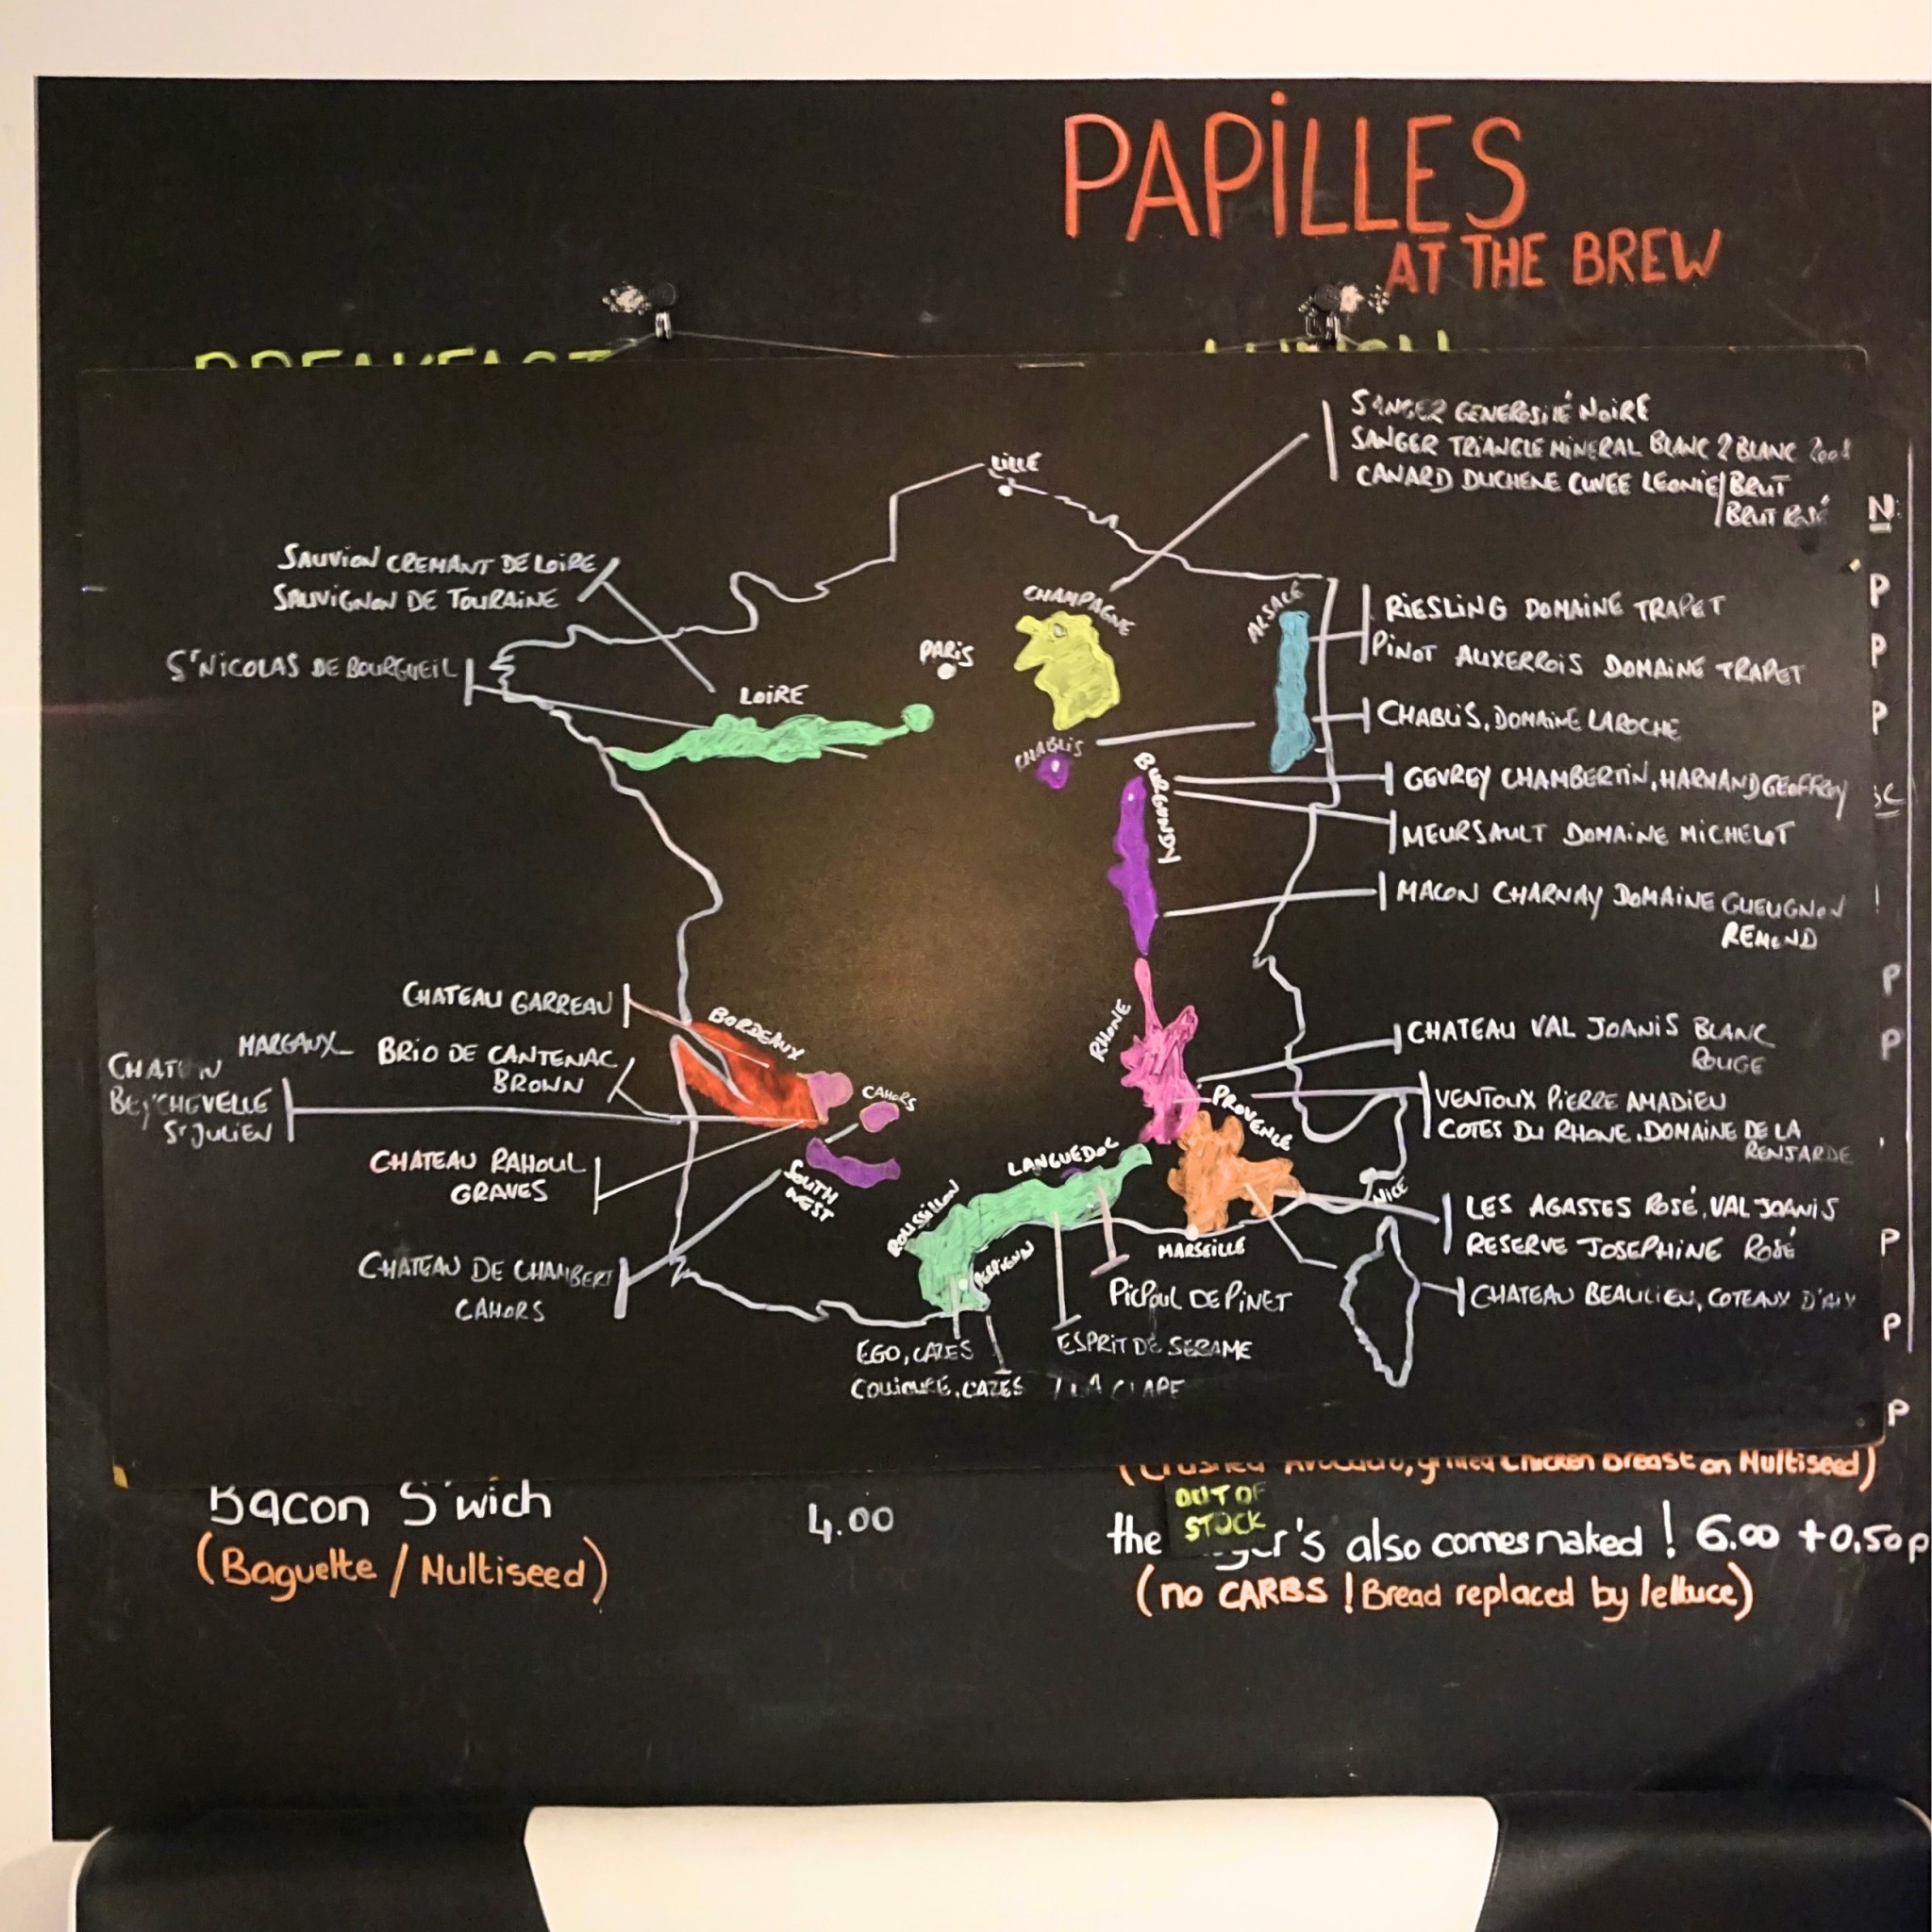 PAPILLES
AT THE BREW
BREAKFAST
LUNCH
SANGER GENEROSITÉ NOIRE
SANGER TRIANGLE MINERAL BLANC 2 BLANC
CANARD DUCHENE CUVEE LEONIE/BRUT
/BRUT ROSÉ
LILLE
SAUVION CREMANT DE LOIRE
SAUVIGNON DE TOURAINE
ST NICOLAS DE BOURGUEIL
LOIRE
PARIS
CHAMPAGNE
ALSACE
RIESLING DOMAINE TRAPET
PINOT AUXERROIS DOMAINE TRAPET
CHABLIS, DOMAINE LAROCHE
CHABLIS
BURGUNDY
GEVREY CHAMBERTIN, HARMAND GEOFFROY
MEURSAULT DOMAINE MICHELOT
MACON CHARNAY DOMAINE GUEUGNON
REMOND
CHATEAU GARREAU
BORDEAUX
MARGAUX BRIO DE CANTENAC
BROWN
CHATEAU
BEYCHEVELLE
ST JULIEN
CHATEAU RAHOUL
GRAVES
CHATEAU DE CHAMBERT
CAHORS
CAHORS
SOUTH
WEST
RHONE
CHATEAU VAL JOANIS BLANC
ROUGE
PROVENCE
VENTOUX PIERRE AMADIEU
COTES DU RHONE, DOMAINE DE LA
RENJARDE
LANGUEDOC
ROUSSILLON
PERPIGNAN
NICE
MARSEILLE
LES AGASSES ROSÉ, VAL JOANIS
RESERVE JOSEPHINE ROSÉ
CHATEAU BEAULIEU, COTEAUX D'AIX
PICPOUL DE PINET
ESPRIT DE SERAME
/ LA CLAPE
EGO, CAZES
COLLIOURE, CAZES
N
P
P
P
P
P
P
P
P
Bacon S'wich 4.00
(Baguette / Multiseed)
(Crushed Avocado, grilled Chicken Breast on Multiseed)
OUT OF
STOCK
the 's also comes naked ! 6.00 +0.50p
(no CARBS ! Bread replaced by lettuce)